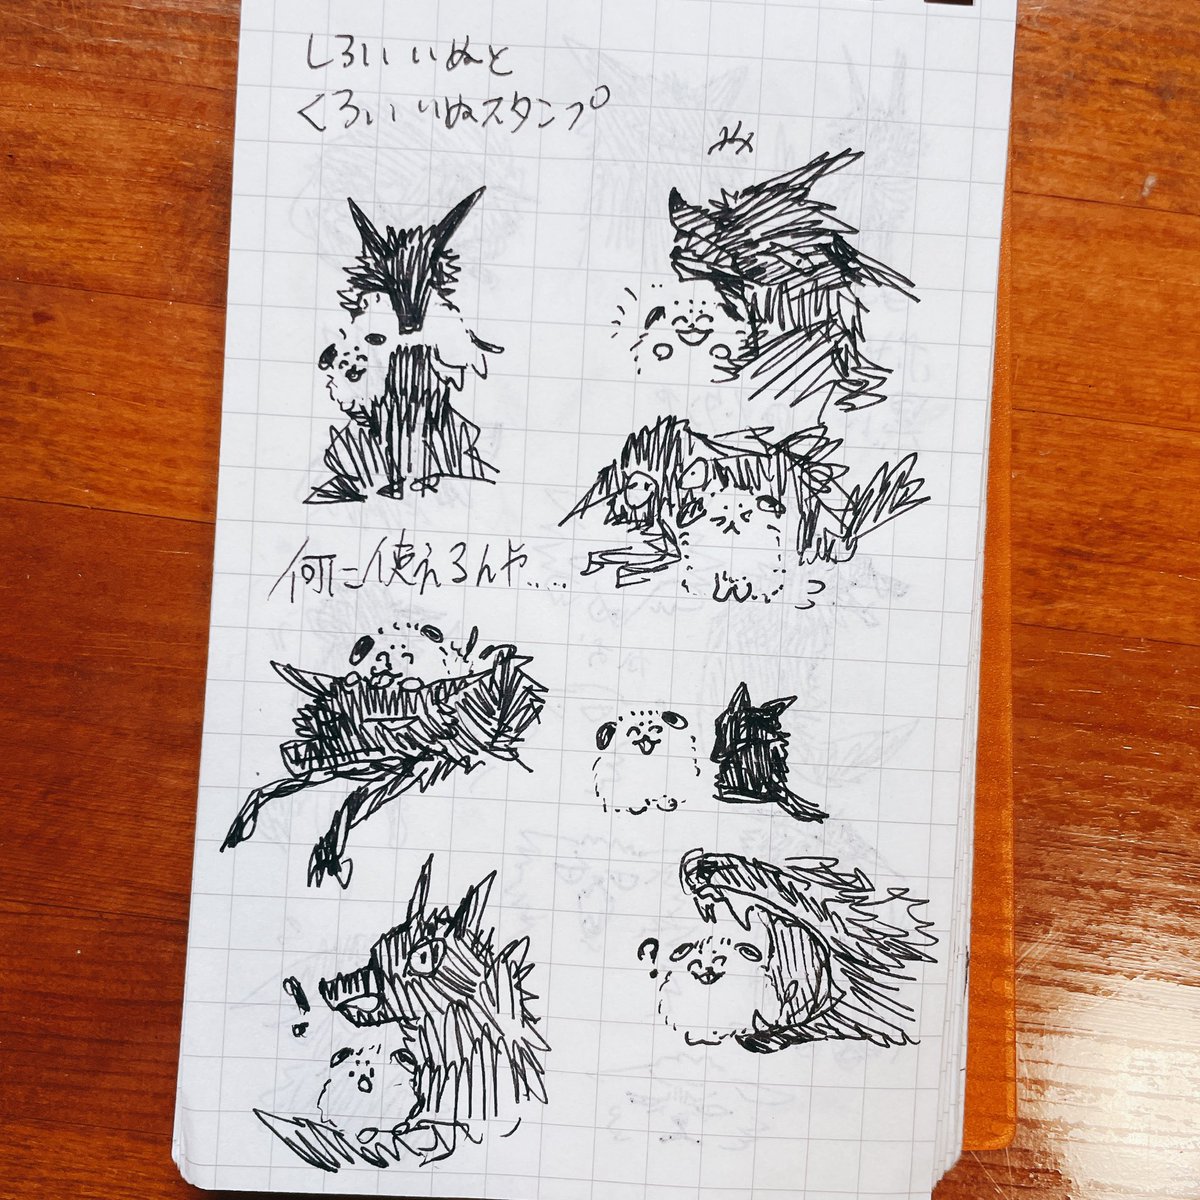 しろいいぬと
くろいいぬスタンプ
何に使えるんや……